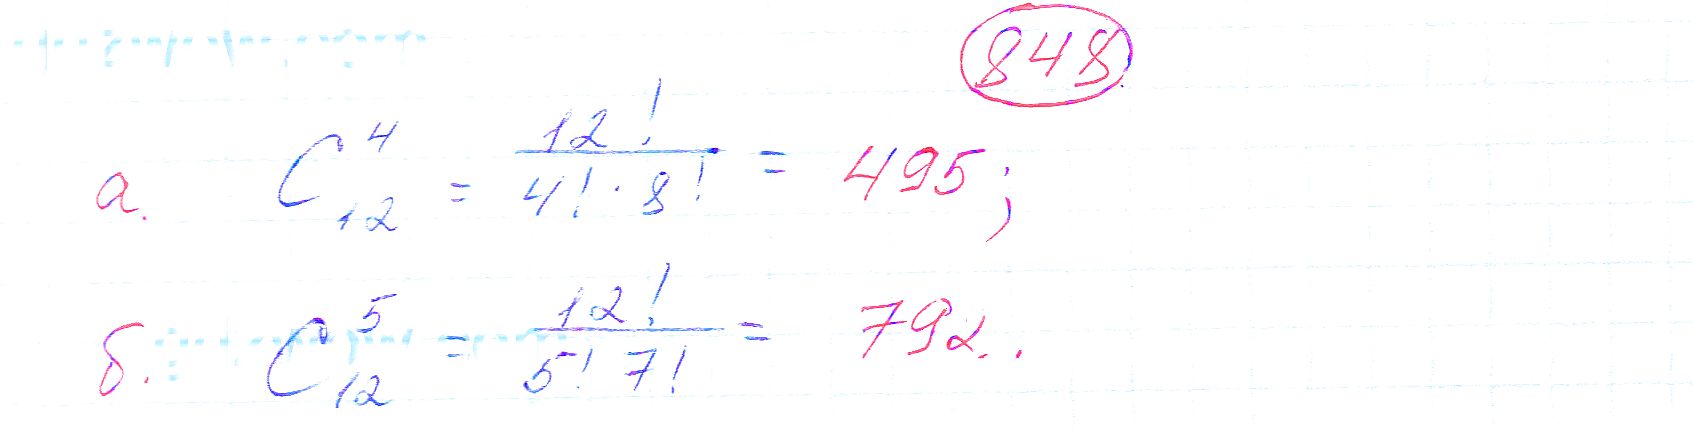 848
а. C₁₂⁴ = 12! / (4! · 8!) = 495;
б. C₁₂⁵ = 12! / (5! 7!) = 792.